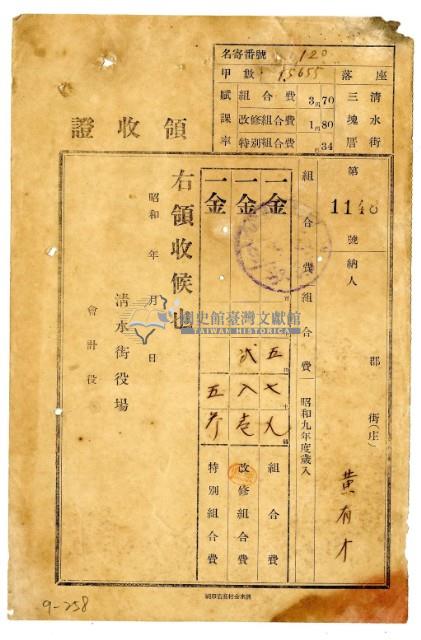 名寄番號 120
甲數 1.5655
座落 清水街三塊厝
賦課率
組合費 3円70
改修組合費 1円80
特別組合費 円34
領收證
第1146號
納人
郡 街(庄)
黃有才
組合費組合費 昭和九年度歲入
一金 五七九 組合費
一金 弐八壱 改修組合費
一金 五参 特別組合費
右領收候也
昭和 年 月 日
清水街役場
會計役
國史館臺灣文獻館
TAIWAN HISTORICA
9-258